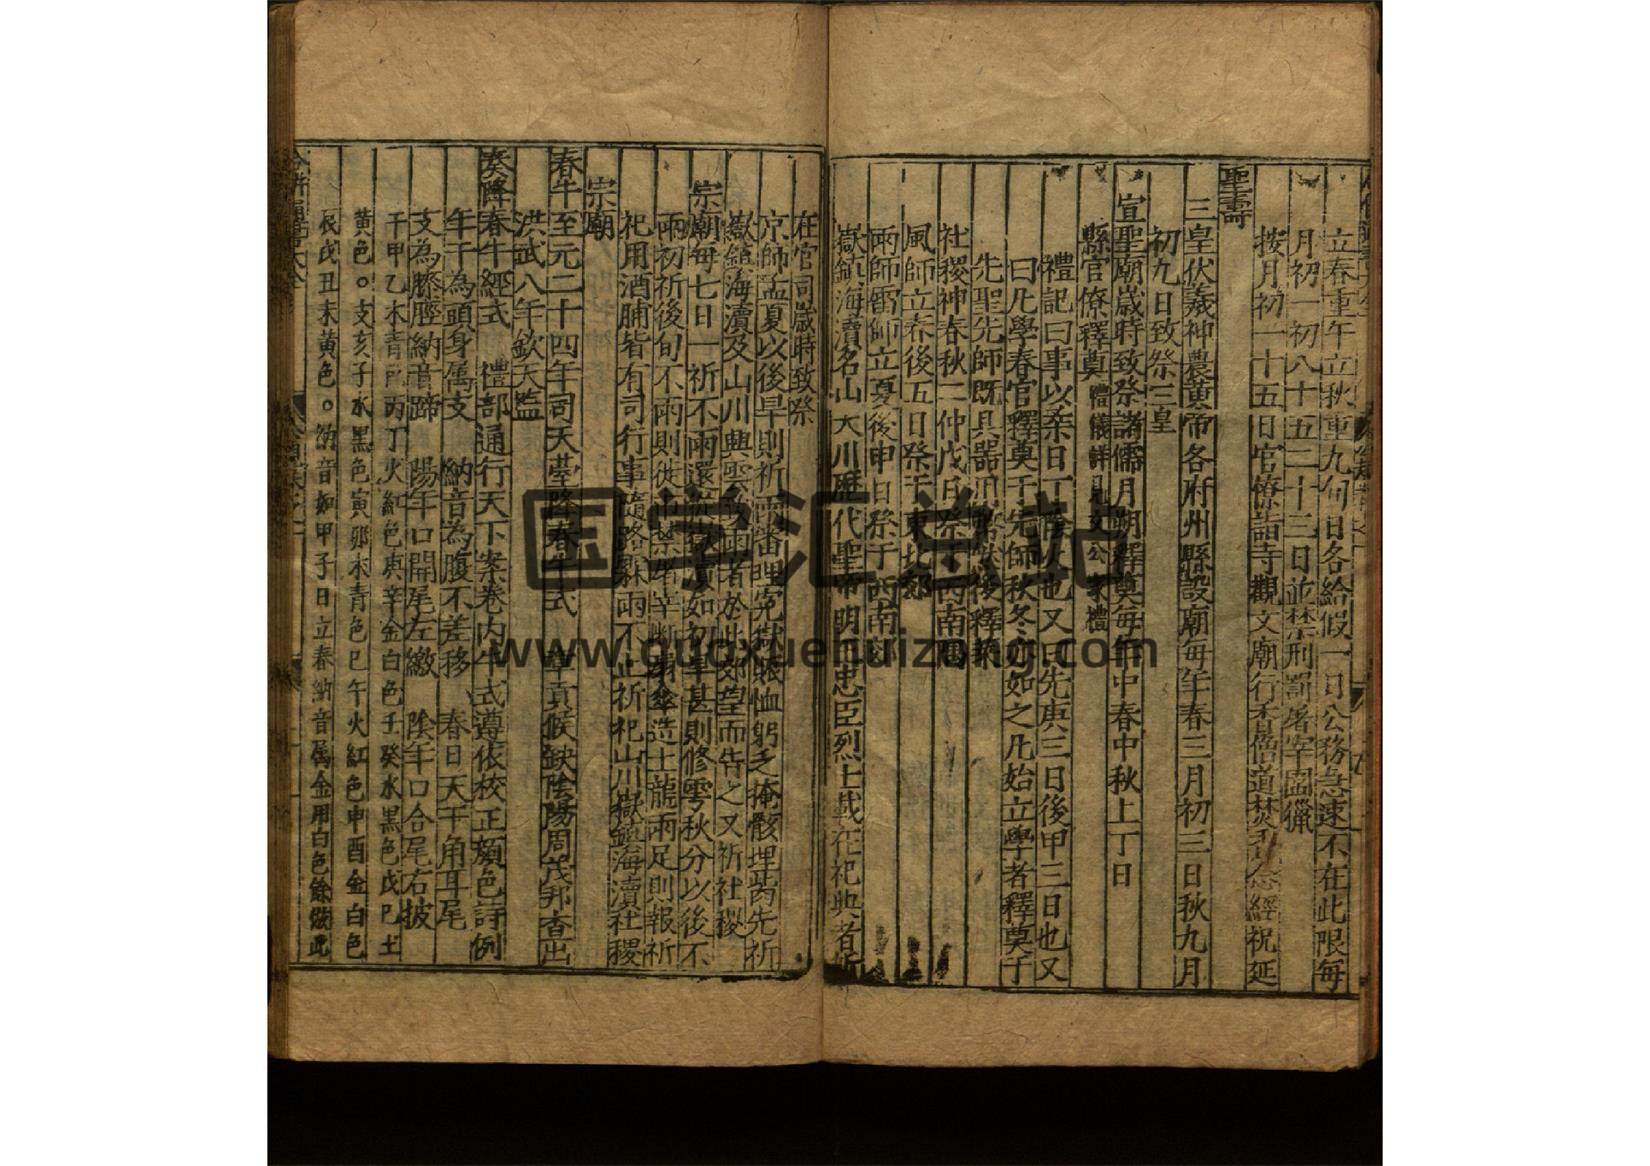 立春重午立秋重九旬日各給假一日公務急速不在此限每
月初一初八十五二十三日並禁刑罰屠宰圍獵
按月初一十五日官僚詣寺觀文廟行香僧道焚香念經祝延
聖壽
三皇伏羲神農黃帝各府州縣設廟每年春三月初三日秋九月
初九日致祭三皇
宣聖廟歲時致祭諸儒月朔釋奠每年中春中秋上丁日
縣官僚釋奠禮儀詳見文公家禮
禮記曰事以柔日丁陰火也又曰先庚三日後甲三日也又
曰凡學春官釋奠于先師秋冬亦如之凡始立學者釋奠于
先聖先師既具器用幣然後釋菜
社稷神春秋二仲戊日祭于西南郊
風師立春後五日祭于東北郊
雨師雷師立夏後申日祭于西南郊
嶽鎮海瀆名山大川歷代聖帝明王忠臣烈士載在祀典者所
在官司歲時致祭
京師孟夏以後旱則祈雨審理冤獄賑恤窮乏掩骸埋胔先祈
嶽鎮海瀆及山川興雲致雨者於北郊望而告之又祈社稷
宗廟每七日一祈不雨還從嶽瀆如初旱甚則修雩秋分以後不
雨初祈後旬不雨則徙市禁屠宰斷繖傘造土龍雨足則報祈
祀用酒脯皆有司行事隨路縣雨不止祈祀山川嶽鎮海瀆社稷
宗廟
春牛至元二十四年司天臺降春牛式 章貢候缺陰陽周茂邦查出
洪武八年欽天監
奏降春牛經式 禮部通行天下案卷內牛式遵依校正顏色詩例
年干為頭身属支 納音為腹不差移 春日天干角耳尾
支為膝脛納音蹄 陽年口開尾左繳 陰年口合尾右披
干甲乙木青色丙丁火紅色庚辛金白色壬癸水黑色戊己土
黃色。支亥子水黑色寅卯木青色巳午火紅色申酉金白色
辰戌丑未黃色。納音如甲子日立春納音属金用白色餘倣此
国学汇总站
www.guoxuehuizong.com